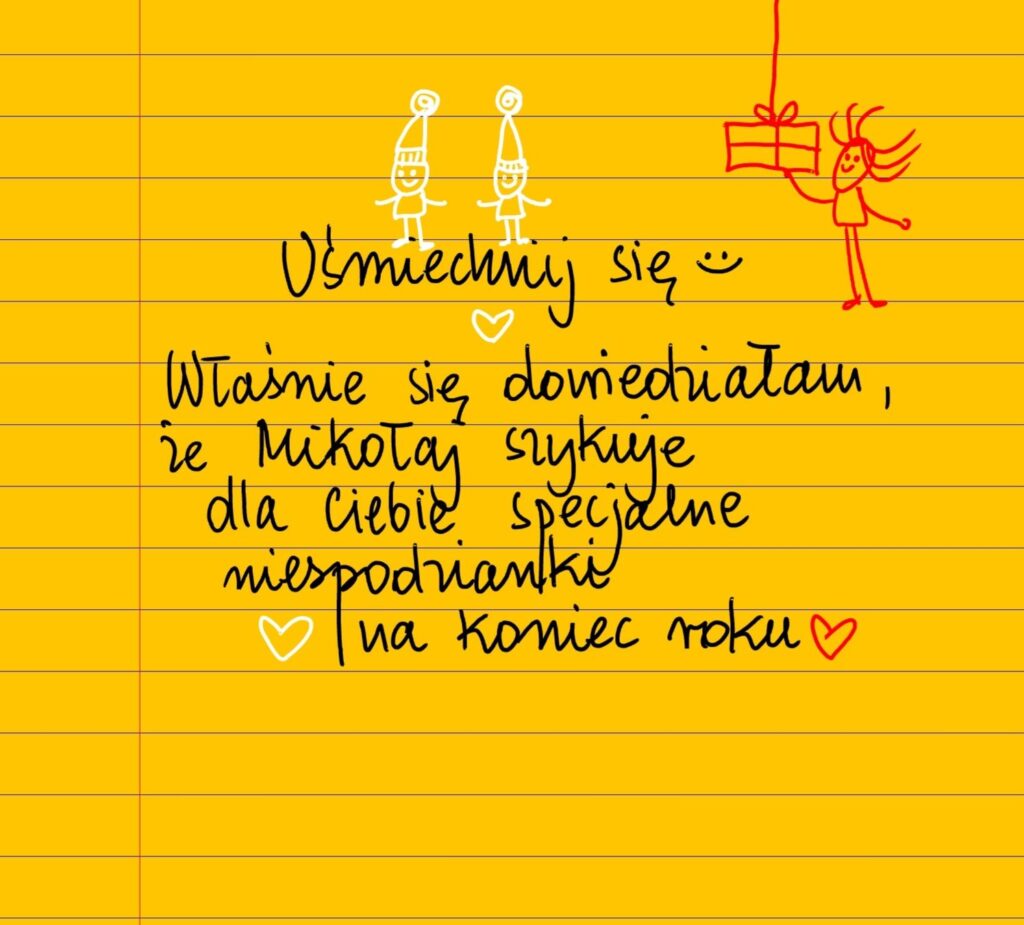 Uśmiechnij się :)
Właśnie się dowiedziałam,
że Mikołaj szykuje
dla Ciebie specjalne
niespodzianki
na koniec roku